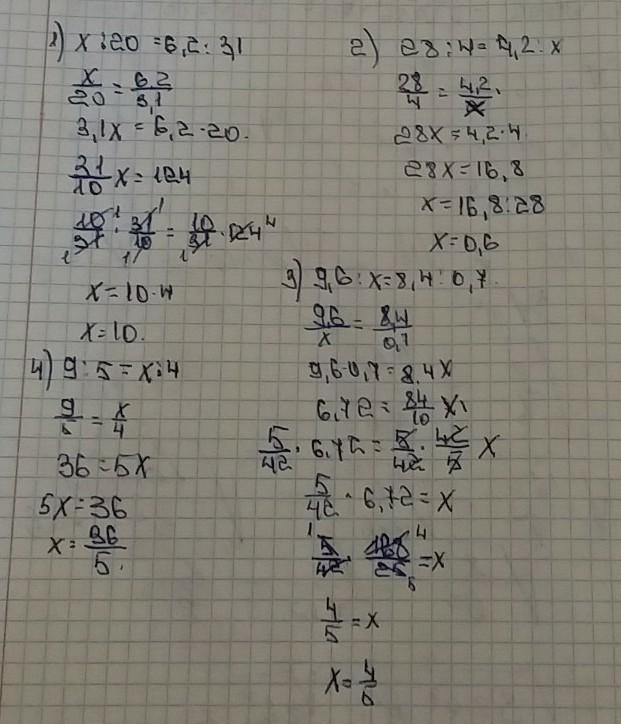 1) x : 20 = 6,2 : 3,1
x/20 = 6,2/3,1
3,1x = 6,2 · 20.
31/10 x = 124
10/31 · 31/10 = 10/31 · 124 4
x = 10 · 4
x = 10.
2) 28 : 4 = 4,2 : x
28/4 = 4,2/x
28x = 4,2 · 4
28x = 16,8
x = 16,8 : 28
x = 0,6
3) 9,6 : x = 8,4 : 0,7
9,6/x = 8,4/0,7
9,6 · 0,7 = 8,4x
6,72 = 84/10 x
5/42 · 6,72 = 5/42 · 42/5 x
5/42 · 6,72 = x
1 5/42 · 168/25 4 5 = x
4/5 = x
x = 4/5
4) 9 : 5 = x : 4
9/5 = x/4
36 = 5x
5x = 36
x = 36/5.